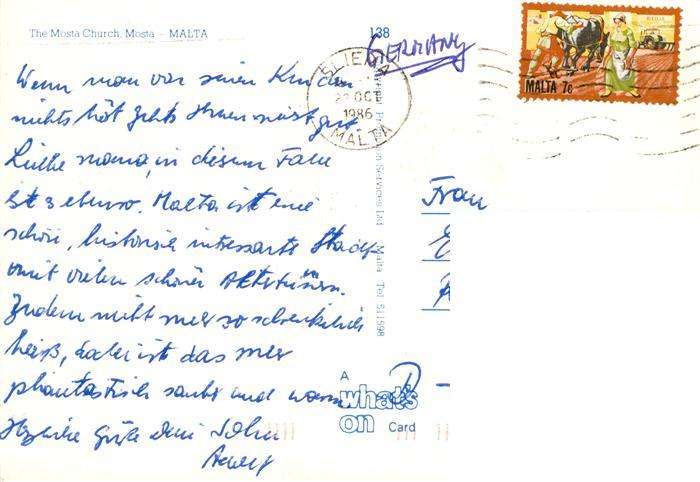 The Mosta Church, Mosta – MALTA
138
GERMANY
SLIEMA
OCT
1986
MALTA
MALTA 7c
Wenn man von seinen Kindern
nichts hört geht's Ihnen meist gut
Liebe Mama, in diesem Falle
ist's ebenso. Malta ist eine
schöne, historisch interessante Stadt
mit vielen schönen
Zudem nicht mehr so schrecklich
heiß, dabei ist das Meer
phantastisch sauber und warm
Herzliche Grüße Dein Sohn
Frau
Services Ltd Malta Tel 511598
A
what's
on Card